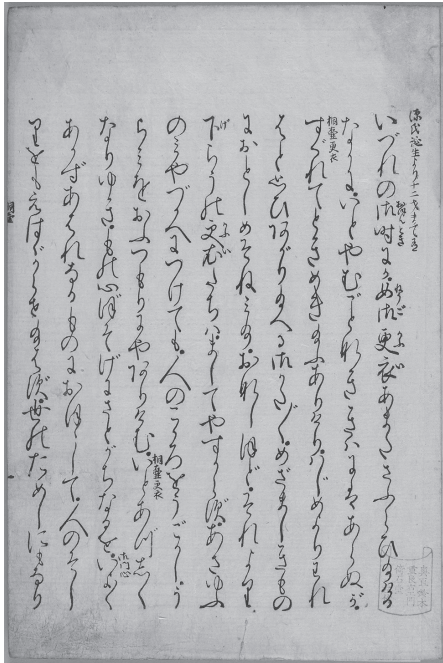 源氏誕生より十二才まて有
いづれの御時にか。女御更衣あまたさふらひ給ける
なかに。いとやむごとなききはにはあらぬが。
桐壺更衣
すぐれてときめき給ふありけり。はじめよりわれ
はと思ひあがり給へる御かた〴〵。めざましきもの
におとしめそねみ給。おなじほど。それより
下らうの更衣たちは。ましてやすからず。あさゆふ
のみやづかへにつけても。人のこゝろをうごかし。う
らみをおふつもりにやありけむ。いとあづしく
桐壺更衣
なりゆき。もの心ぼそげにさとがちなるを。いよ〳〵
御門心
あかずあはれなるものにおぼして。人のそし
りをもえはゞからせ給はず。世のためしにもなり